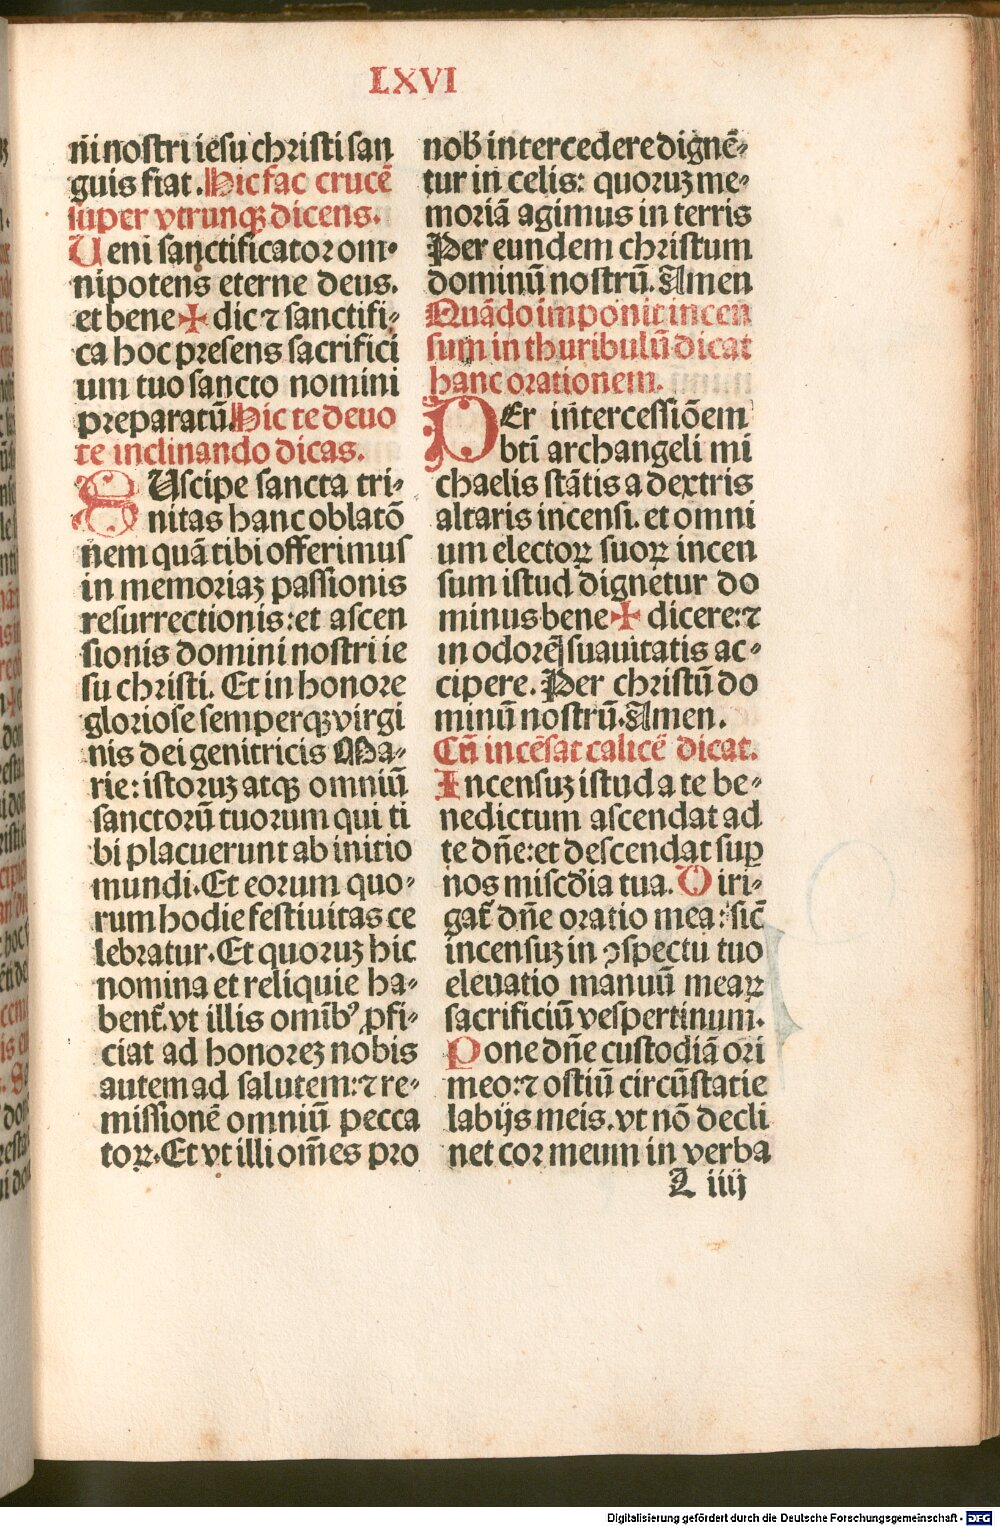 LXVI
n̄i nostri iesu christi san
guis fiat. Hic fac crucē
super vtrunqꝫ dicens.
Ueni sanctificator om-
nipotens eterne deus.
et bene✠dic ⁊ sanctifi-
ca hoc presens sacrifici
um tuo sancto nomini
preparatū. Hic te deuo
te inclinando dicas.
SUscipe sancta tri-
nitas hanc oblatō
nem quā tibi offerimus
in memoriaꝫ passionis
resurrectionis: et ascen
sionis domini nostri ie
su christi. Et in honore
gloriose semperqꝫ virgi
nis dei genitricis Ma-
rie: istoruꝫ atqꝫ omniū
sanctorū tuorum qui ti
bi placuerunt ab initio
mundi. Et eorum quo-
rum hodie festiuitas ce
lebratur. Et quoruꝫ hic
nomina et reliquie ha-
bent̄. vt illis omībꝰ ꝓfi-
ciat ad honoreꝫ nobis
autem ad salutem: ⁊ re-
missionē omniū pecca
toꝝ. Et vt illi om̄es pro
nob̄ intercedere dignē-
tur in celis: quoruꝫ me-
moriā agimus in terris
Per eundem christum
dominū nostrū. Amen
Quādo imponit incen
sum in thuribulū dicat
hanc orationem.
PEr in̄tercessiōem
bt̄i archangeli mi
chaelis stātis a dextris
altaris incensi. et omni
um electoꝝ suoꝝ incen
sum istud dignetur do
minus bene✠dicere: ⁊
in odorē suauitatis ac-
cipere. Per christū do
minū nostrū. Amen.
Cū incēsat calicē dicat.
Incensuꝫ istud a te be-
nedictum ascendat ad
te dn̄e: et descendat suꝑ
nos misc̄dia tua. Diri-
gat̄ dn̄e oratio mea: sic̄
incensuꝫ in ꝯspectu tuo
eleuatio manuū meaꝝ
sacrificiū vespertinum.
Pone dn̄e custodiā ori
meo: ⁊ ostiū circūstatie
labijs meis. vt nō decli
net cor meum in verba
L iiij
Digitalisierung gefördert durch die Deutsche Forschungsgemeinschaft - DFG